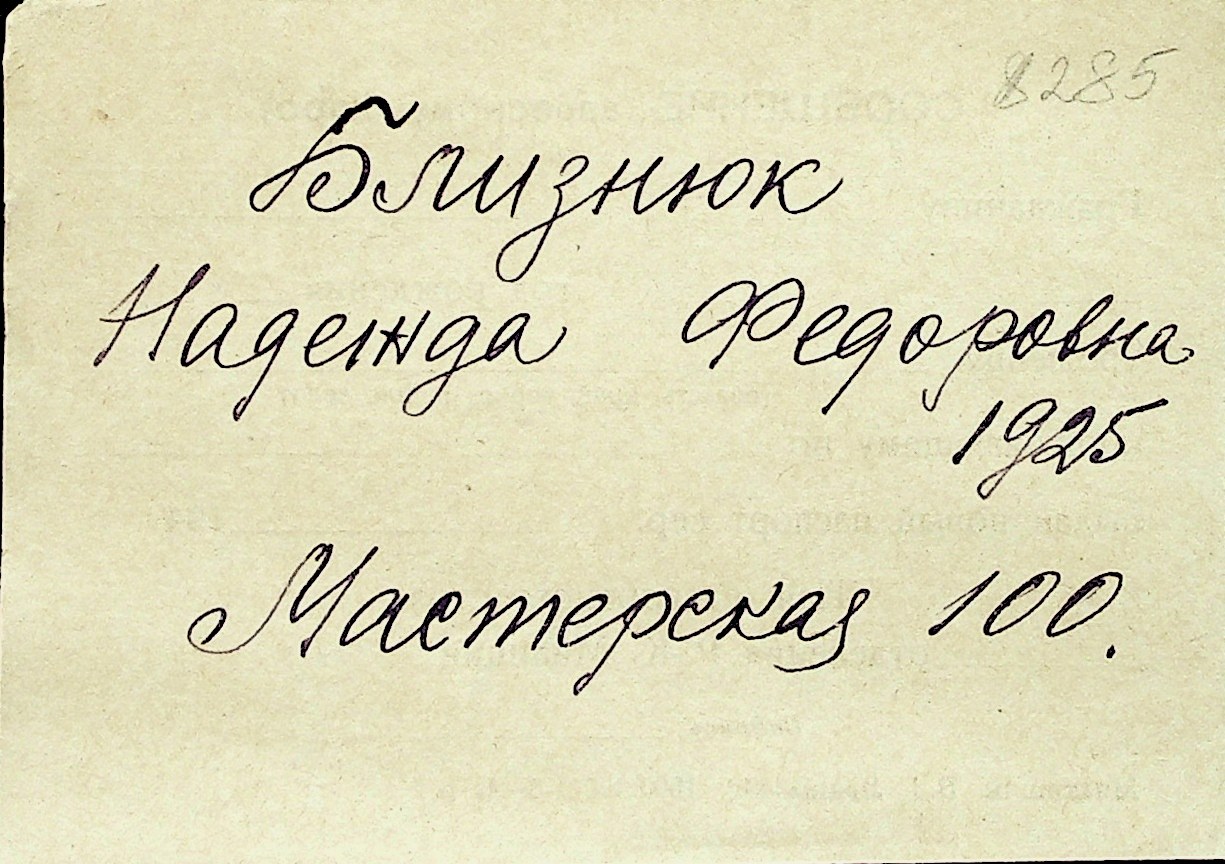 8285
Близнюк
Надежда Федоровна
1925
Мастерская 100.